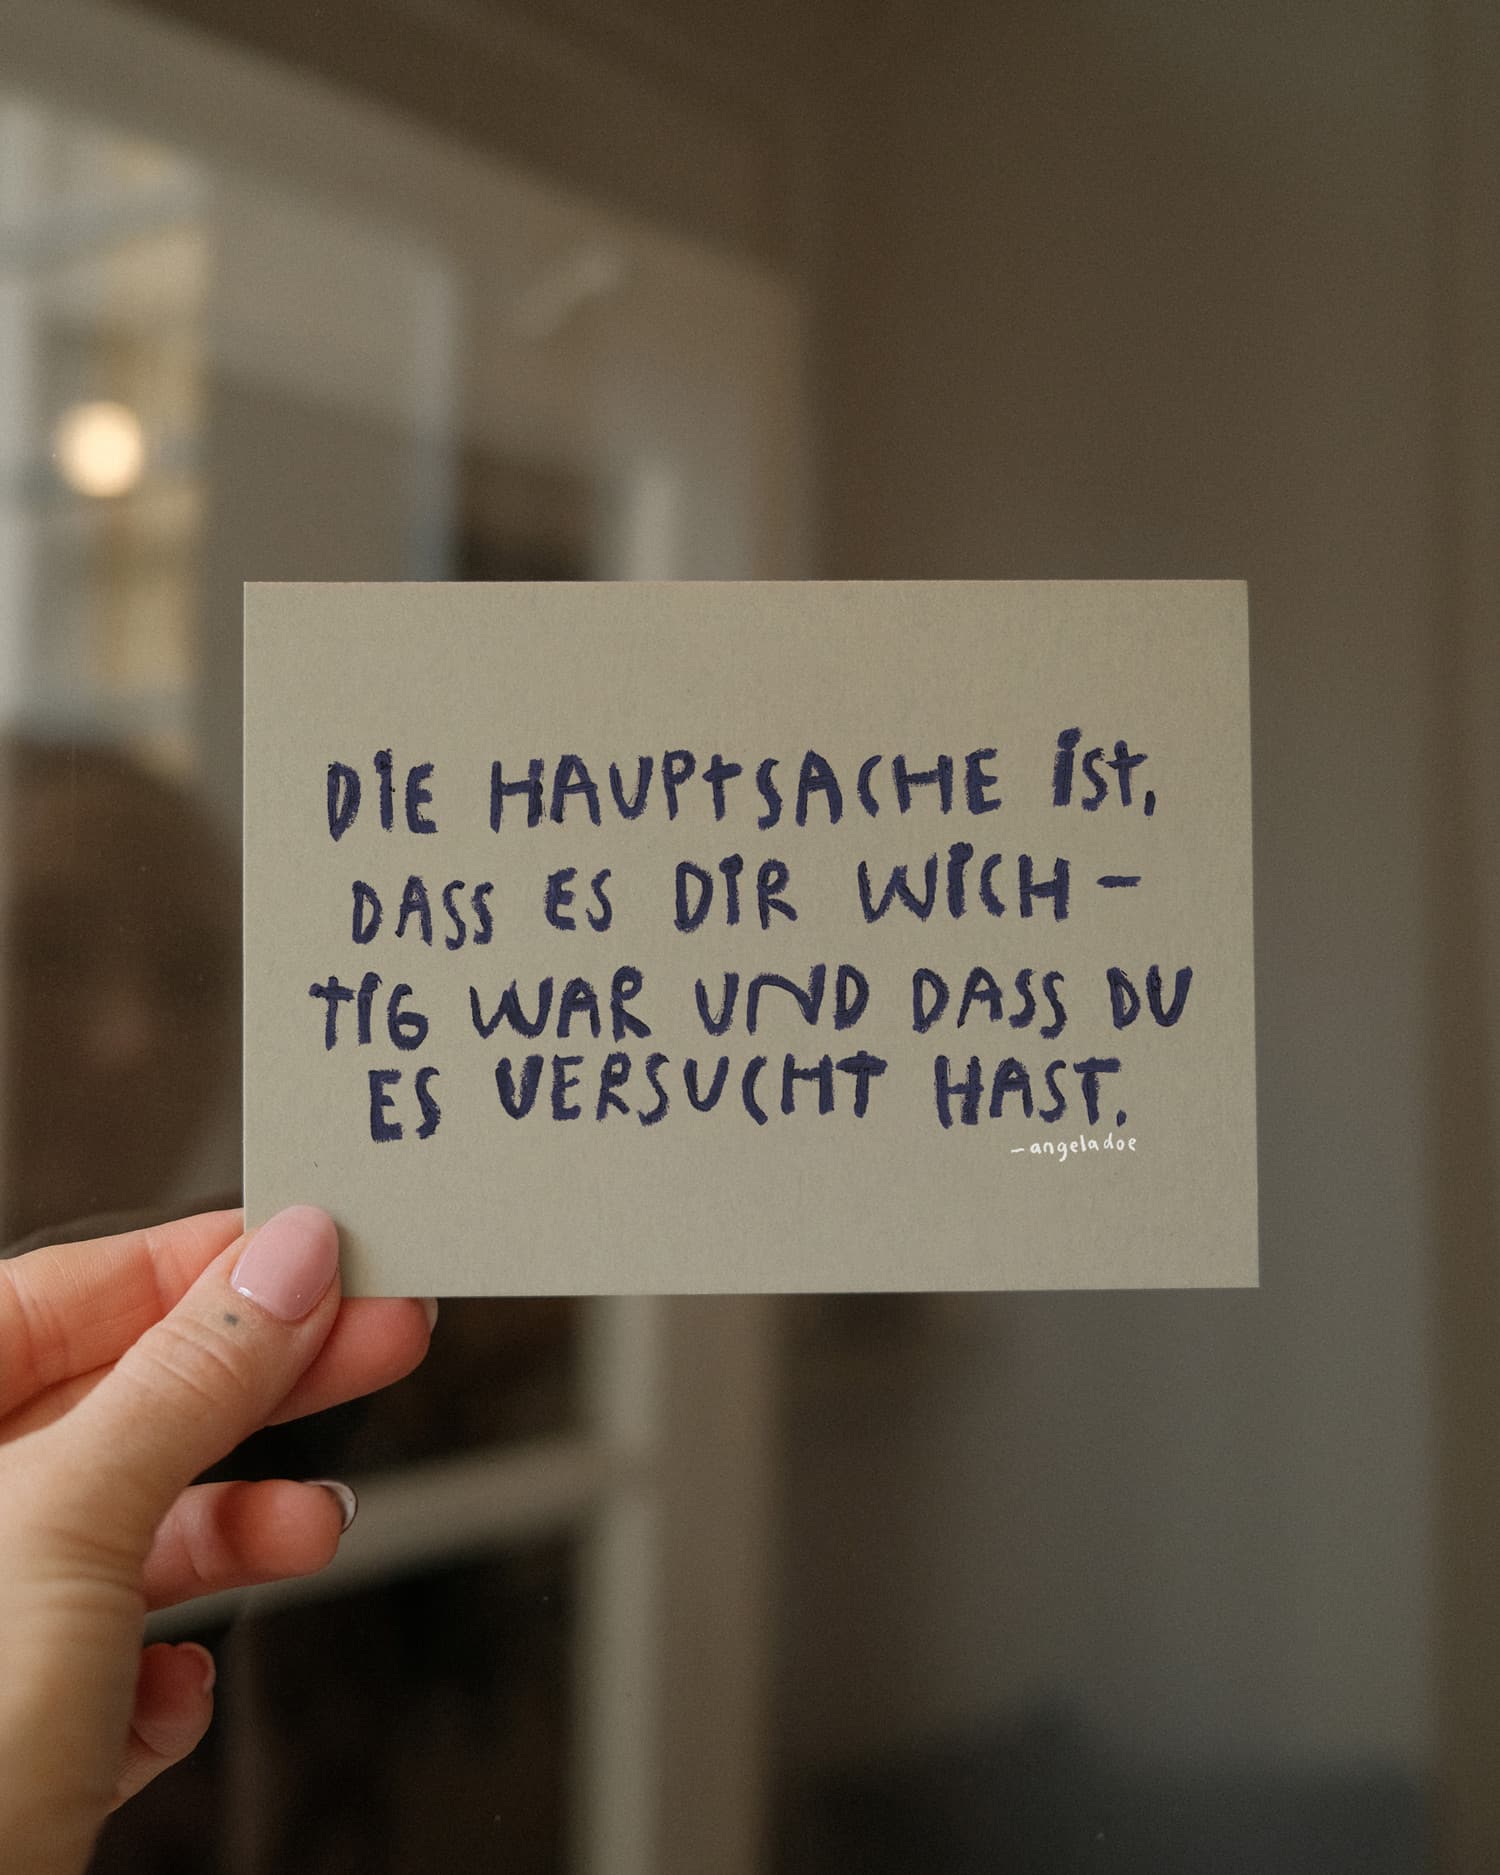 DIE HAUPTSACHE IST,
DASS ES DIR WICH-
TIG WAR UND DASS DU
ES VERSUCHT HAST.
- angeladoe